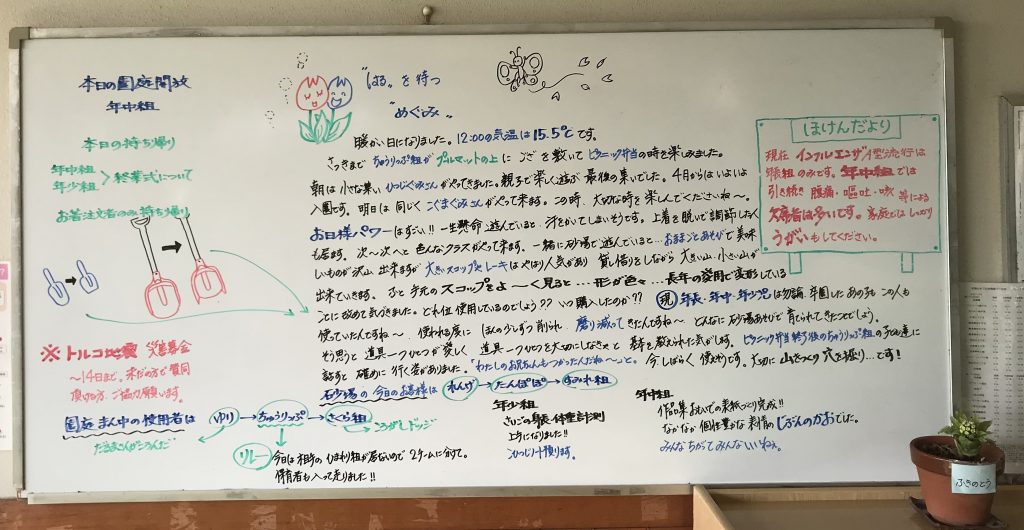 本日の園庭開放
年中組
本日の持ち帰り
年中組
年少組 > 終業式について
お箸注文者のみ持ち帰り
※トルコ地震 災害募金
～14日まで。未だの方で賛同
頂ける方、ご協力願います。
"はる"を待つ
"めぐみ"
暖かい日になりました。12:00の気温は15.5℃です。
さっきまで ちゅうりっぷ組が プルマットの上に ござを敷いて ピクニック弁当の時を楽しみました。
朝は小さな集い ひつじぐみさんがやってきました。親子で楽しく遊ぶ 最後の集いでした。4月からはいよいよ
入園です。明日は同じく こぐまぐみさんがやって来ます。この時、大切な時を楽しんでくださいね～。
お日様パワーはすごい!! 一生懸命 遊んでいると、汗をかいてしまいそうです。上着を脱いで調節したく
も居ます。次～次へと 色んなクラスがやって来ます。一緒に砂場で遊んでいると…おままごとあそびで美味
しいものが沢山 出来ますが 大きいスコップとレーキはやはり人気があり 貸し借りをしながら 大きい山・小さい山が
出来ていきます。ふと手元のスコップをよ～く見ると…形が色々…長年の愛用で変形している
ことに改めて気づきました。どれ位使用しているのでしょう?? いつ購入したのか?? 現 年長・年中・年少児は勿論、卒園したあの子も この人も
使っていたんですね～。使われる度に ほんの少しずつ削られ、磨り減ってきたんですね～ どんなに砂場あそびで育てられてきたことでしょう。
そう思うと 道具一つひとつが愛しく 道具一つひとつを大切にしなきゃと 基本を教えられた気がします。ピクニック弁当終了後のちゅうりっぷ組の子ども達に
話すと 確かめに行く姿がありました。「わたしのお兄ちゃんもつかったんだね～」と。今しばらく使えそうです。大切に 山をつくり 穴を掘り…です!
石砂場の今日のお客様は れんげ → たんぽぽ → すみれ組
園庭まん中の使用者は ゆり → ちゅうりっぷ → さくら組
だるまさんがころんだ
ころがしドッジ
リレー
今日は相手のひまわり組が居ないので 2チームに分けて。
保育者も入って走りました!!
年少組
さいごの身長・体重計測
上手になりました!!
年中組
作品集 おもいでの表紙づくり完成!!
なかなか個性豊かな表情の じぶんのかおでした。
みんなちがってみんないいねぇ。
ほけんだより
現在 インフルエンザ
年長組のみです。年中組では
引き続き 腹痛・嘔吐・咳 等による
欠席者は多いです。家庭ではしっかり
うがいもしてください。
ふきのとう